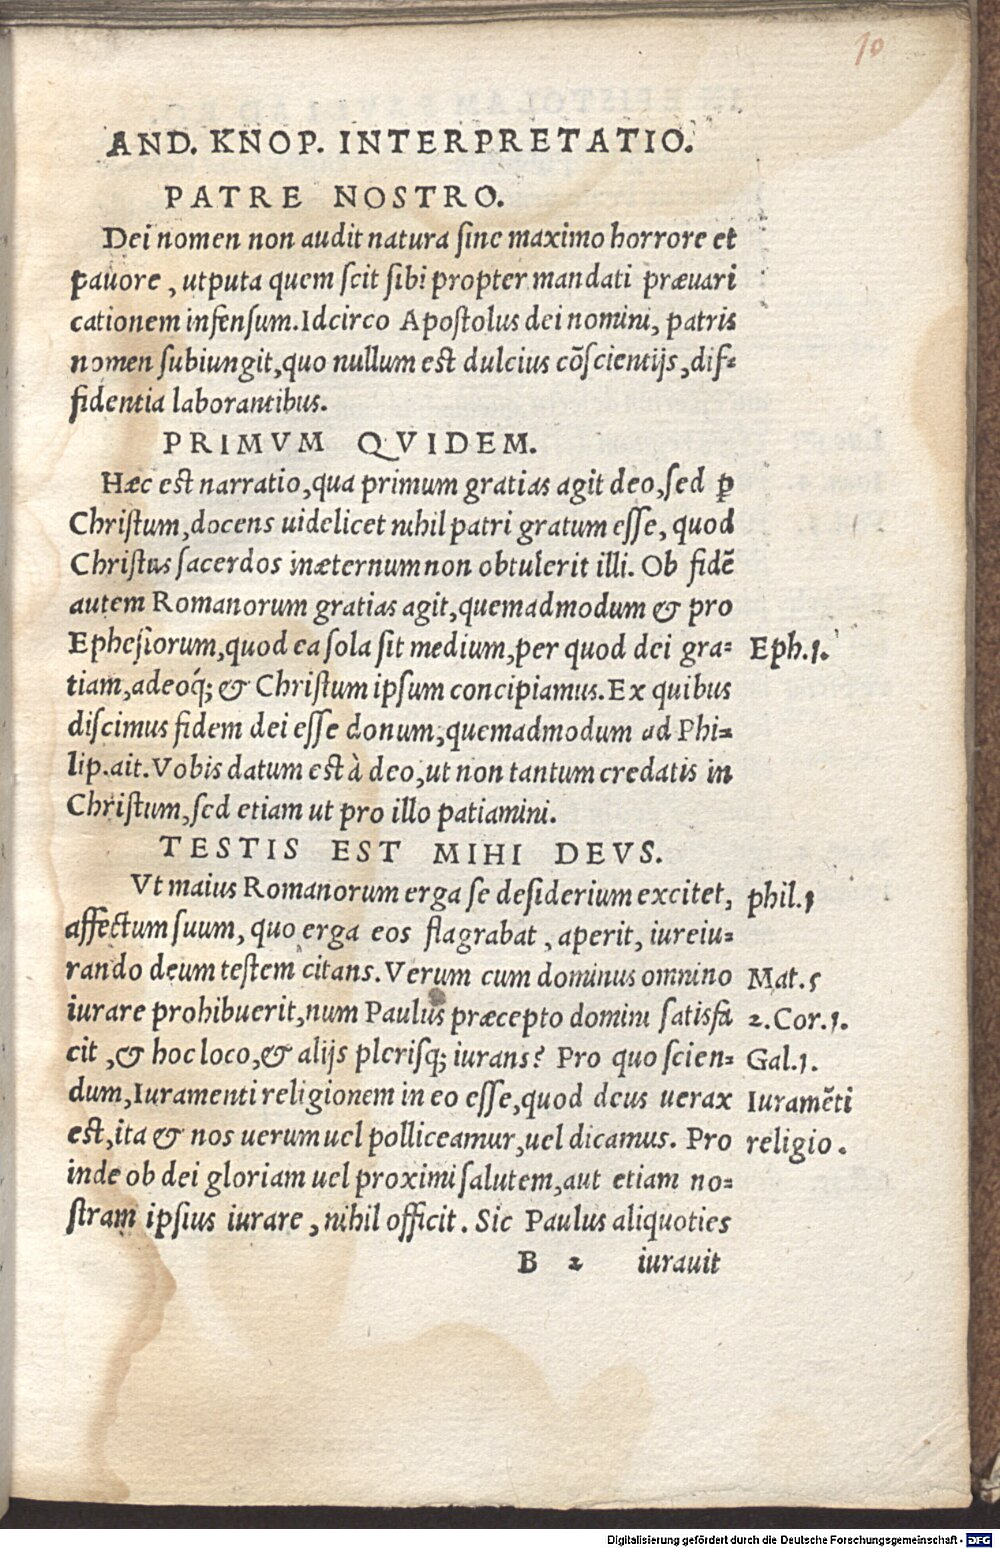 10
AND. KNOP. INTERPRETATIO.
PATRE NOSTRO.
Dei nomen non audit natura sine maximo horrore et
pauore, utputa quem scit sibi propter mandati præuari
cationem infensum. Idcirco Apostolus dei nomini, patris
nomen subiungit, quo nullum est dulcius cõscientijs, dif-
fidentia laborantibus.
PRIMVM QVIDEM.
Hæc est narratio, qua primum gratias agit deo, sed ꝑ
Christum, docens uidelicet nihil patri gratum esse, quod
Christus sacerdos in æternum non obtulerit illi. Ob fidẽ
autem Romanorum gratias agit, quemadmodum & pro
Ephesiorum, quod ea sola sit medium, per quod dei gra- Eph.1.
tiam, adeoq́; & Christum ipsum concipiamus. Ex quibus
discimus fidem dei esse donum, quemadmodum ad Phi-
lip. ait. Vobis datum est à deo, ut non tantum credatis in
Christum, sed etiam ut pro illo patiamini.
TESTIS EST MIHI DEVS.
Vt maius Romanorum erga se desiderium excitet, phil.1
affectum suum, quo erga eos flagrabat, aperit, iureiu-
rando deum testem citans. Verum cum dominus omnino Mat.5
iurare prohibuerit, num Paulus præcepto domini satisfa 2.Cor.1.
cit, & hoc loco, & alijs plerisq; iurans? Pro quo scien- Gal.1.
dum, Iuramenti religionem in eo esse, quod deus uerax Iuramẽti
est, ita & nos uerum uel polliceamur, uel dicamus. Pro religio.
inde ob dei gloriam uel proximi salutem, aut etiam no-
stram ipsius iurare, nihil officit. Sic Paulus aliquoties
B 2 iurauit
Digitalisierung gefördert durch die Deutsche Forschungsgemeinschaft - DFG